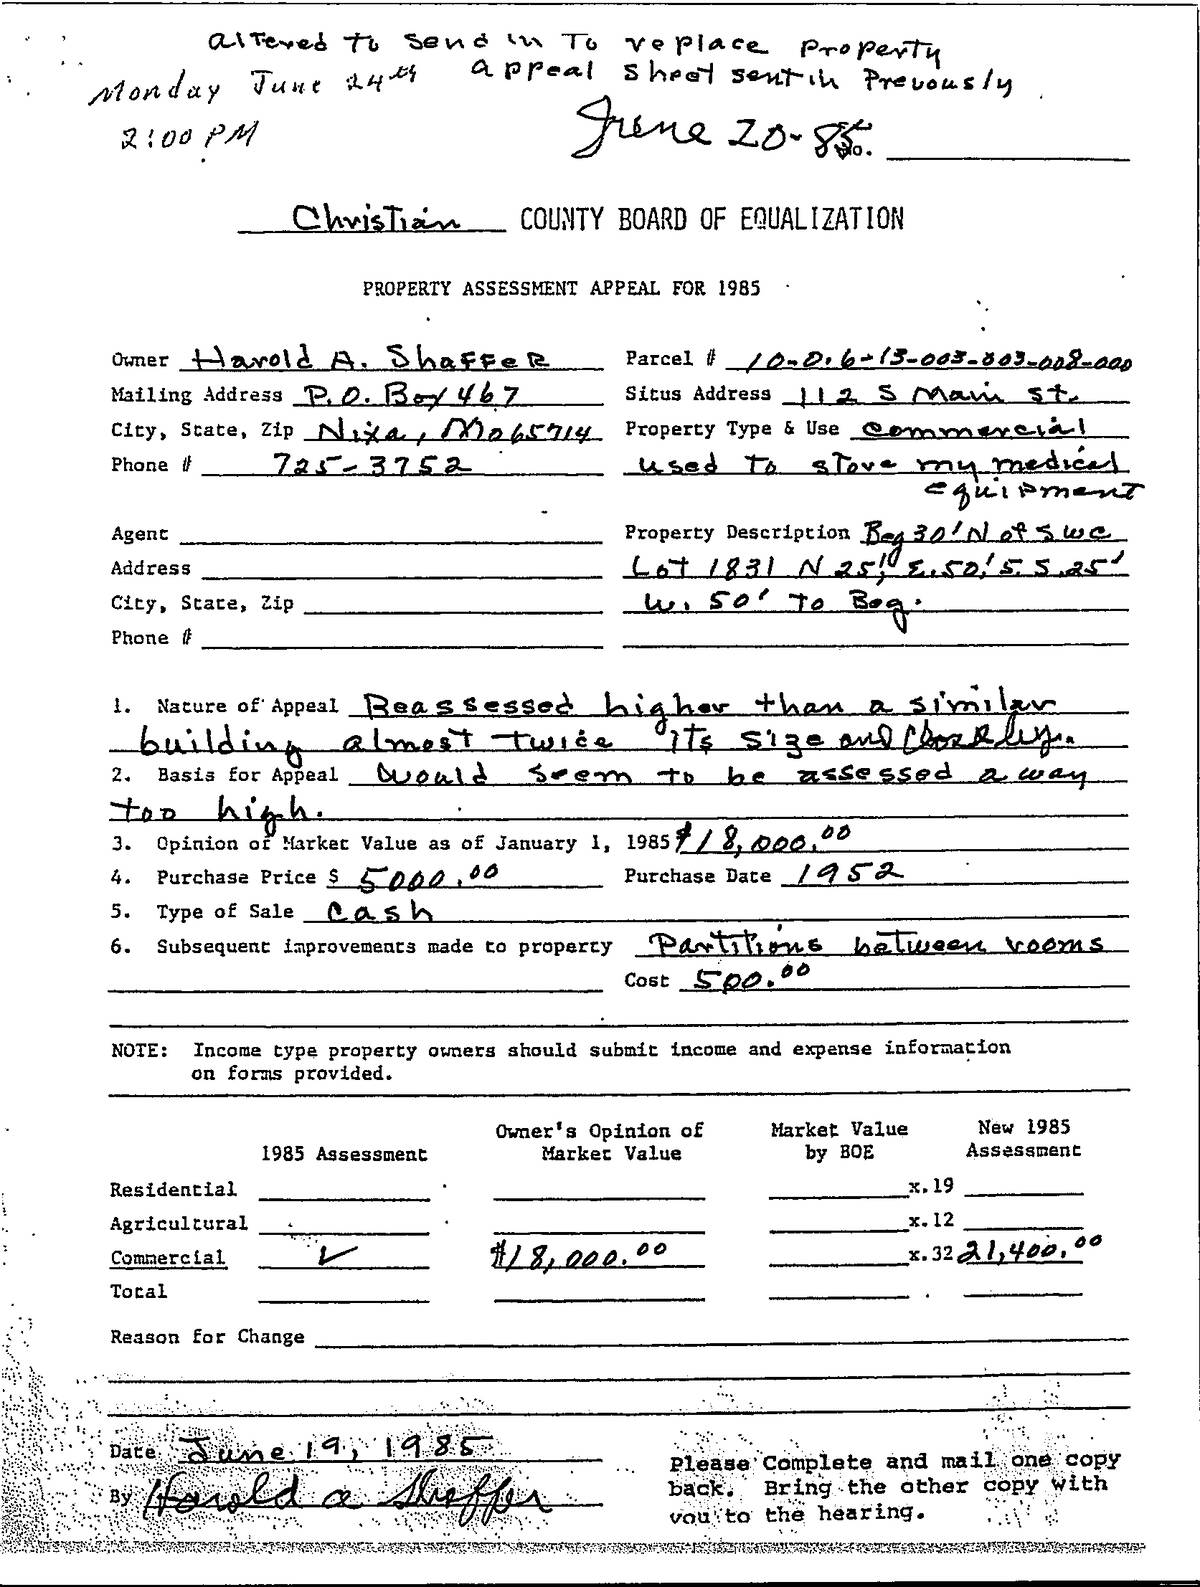 altered to send in To replace property
Monday June 24th appeal sheet sent in Prevously
2:00 PM
June 20-85 No.
Christian COUNTY BOARD OF EQUALIZATION
PROPERTY ASSESSMENT APPEAL FOR 1985
Owner Harold A. Shaffer Parcel # 10-0.6-13-003-003-008-000
Mailing Address P.O. Box 467 Situs Address 112 S Main St.
City, State, Zip Nixa, Mo 65714 Property Type & Use Commercial
Phone # 725-3752 used to store my medical
equipment
Agent Property Description Beg 30' N of SWC
Address Lot 1831 N 25', E. 50', S. S. 25'
City, State, Zip W. 50' To Beg.
Phone #
1. Nature of Appeal Reassessed higher than a similar
building almost twice its size and close by.
2. Basis for Appeal Would seem to be assessed a way
too high.
3. Opinion of Market Value as of January 1, 1985 $18,000.00
4. Purchase Price $ 5000.00 Purchase Date 1952
5. Type of Sale Cash
6. Subsequent improvements made to property Partitions between rooms
Cost 500.00
NOTE: Income type property owners should submit income and expense information
on forms provided.
Owner's Opinion of Market Value New 1985
1985 Assessment Market Value by BOE Assessment
Residential x.19
Agricultural x.12
Commercial ✓ $18,000.00 x.32 21,400.00
Total
Reason for Change
Date June 19, 1985
Please Complete and mail one copy
By Harold A Shaffer back. Bring the other copy with
you to the hearing.